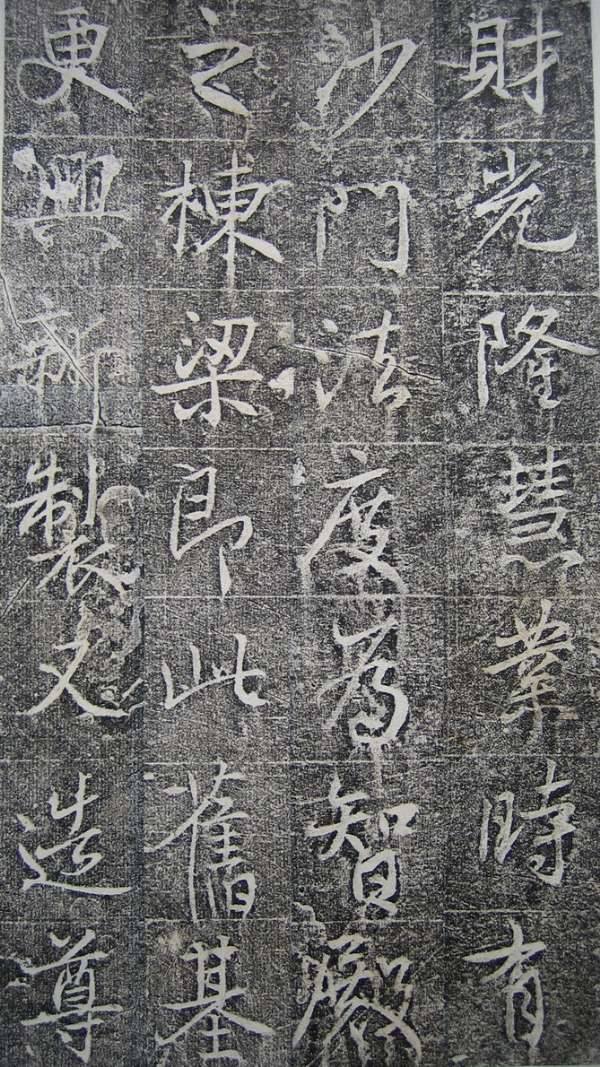 財光隆慧業時有
沙門法度為智
之棟梁即此舊基
更興新製又造尊